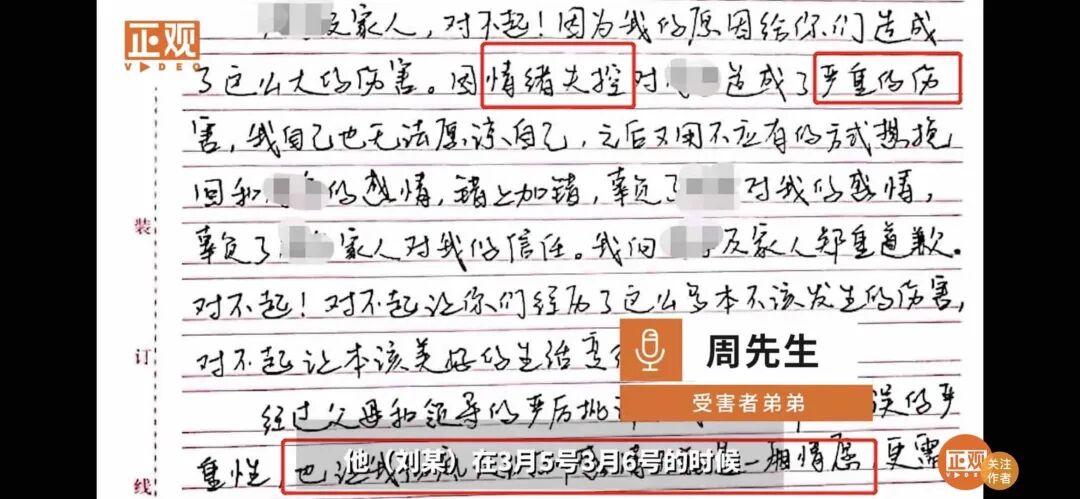 正观
VIDEO
及家人，对不起！因为我的原因给你们造成
了这么大的伤害。因情绪失控对 造成了严重的伤
害，我自己也无法原谅自己，之后又用不应有的方式想挽
回和 的感情，错上加错，辜负了 对我的感情，
辜负了 家人对我的信任。我向 及家人郑重道歉。
对不起！对不起让你们经历了这么多本不该发生的伤害，
对不起让本该美好的生活变
周先生
受害者弟弟
经过父母和领导的严厉批 误的严
重性，也让我 一厢情愿，更需
他（刘某）在3月5号3月6号的时候
装
订
线
正观
关注
作者